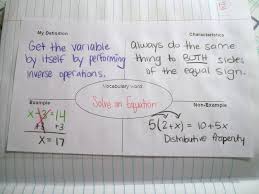 My Definition
Get the variable
by itself by performing
inverse operations.
Characteristics
always do the same
thing to BOTH sides
of the equal sign.
Vocabulary Word
Solve an Equation
Example
x - 3 = 14
+3 +3
x = 17
Non-Example
5(2+x) = 10+5x
Distributive Property